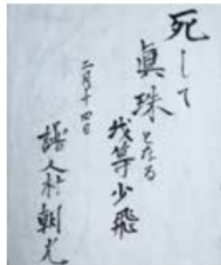 死して
眞珠となる
我等少飛
二月十四日
朝光